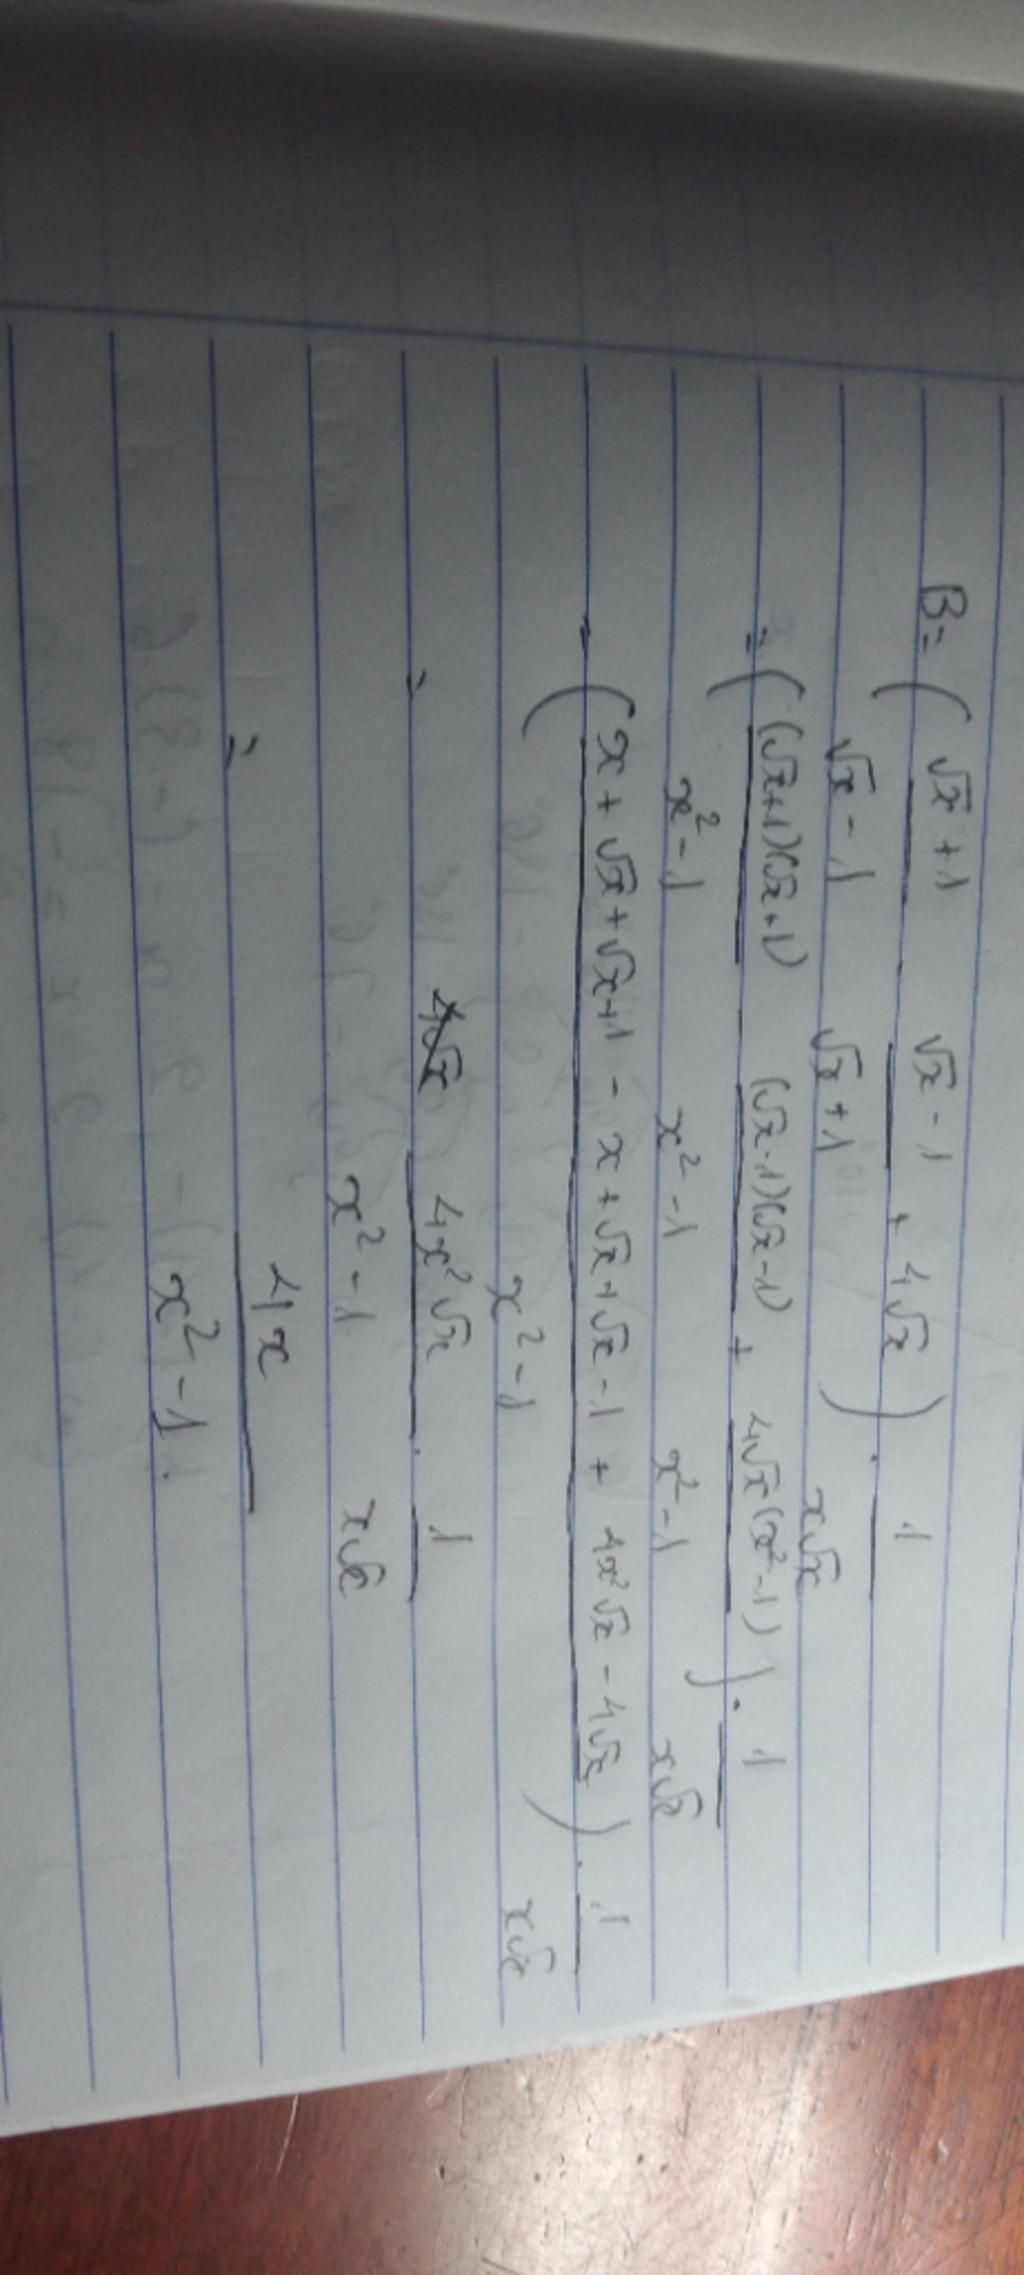 B = ( √x + 1 / √x - 1 - √x - 1 / √x + 1 + 4√x ) . 1 / x√x
= ( (√x+1)(√x+1) / x² - 1 - (√x-1)(√x-1) / x² - 1 + 4√x(x²-1) / x² - 1 ) . 1 / x√x
= ( x + √x + √x + 1 - x + √x + √x - 1 + 4x²√x - 4√x / x² - 1 ) . 1 / x√x
= 4x²√x / x² - 1 . 1 / x√x
= 4x / x² - 1 .